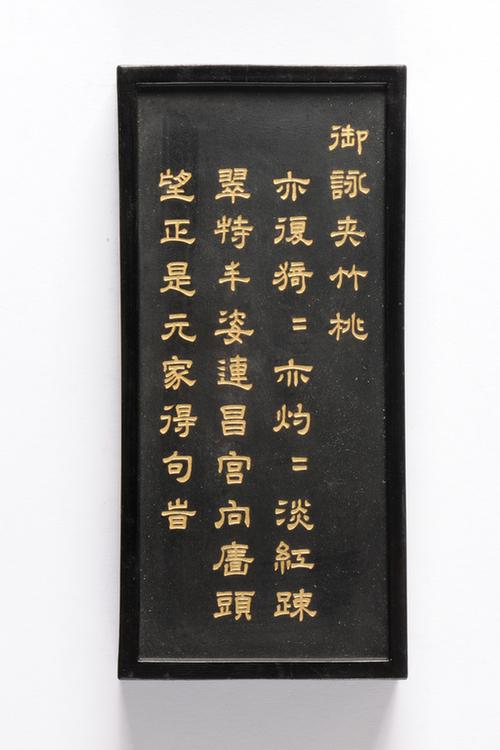 御詠夾竹桃
亦復猗〻亦灼〻淡紅踈
翠特丰姿連昌宮向廧頭
望正是元家得句旹